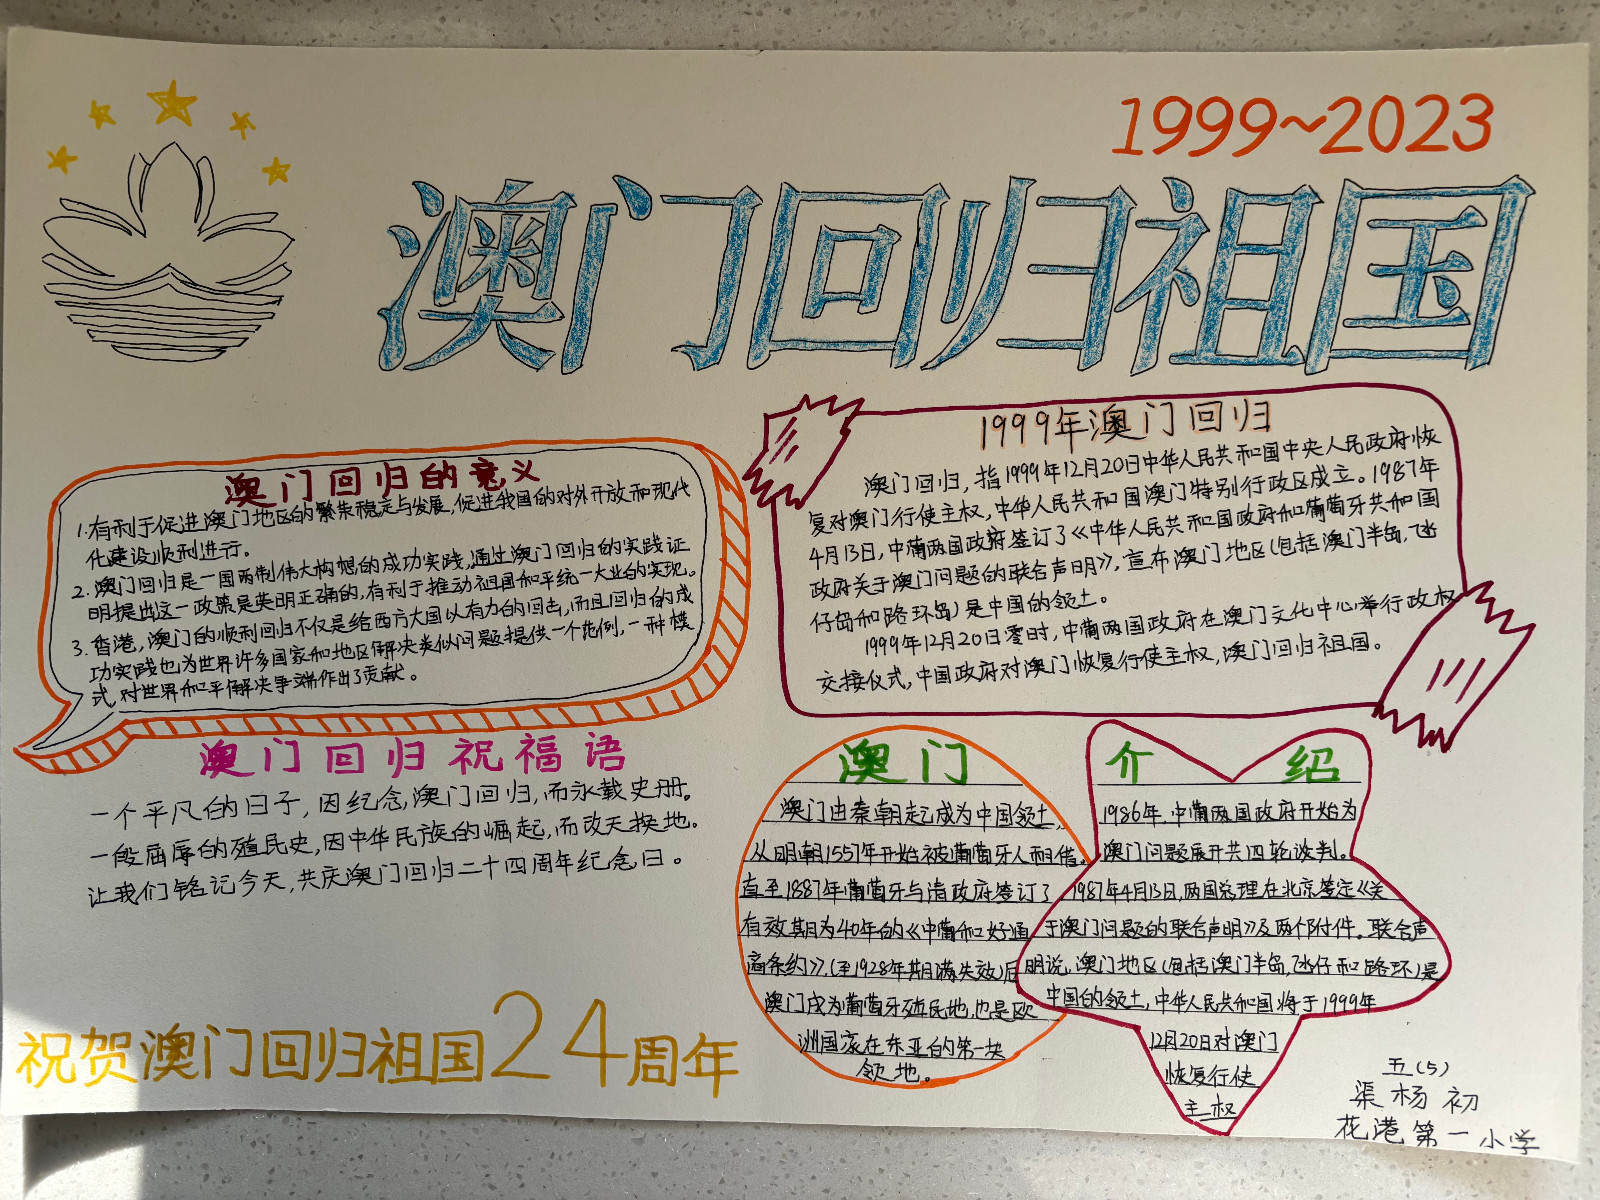 1999~2023
澳门回归祖国
澳门回归的意义
1.有利于促进澳门地区的繁荣稳定与发展,促进我国的对外开放和现代
化建设顺利进行。
2.澳门回归是一国两制伟大构想的成功实践,通过澳门回归的实践证
明提出这一政策是英明正确的,有利于推动祖国和平统一大业的实现。
3.香港,澳门的顺利回归不仅是给西方大国以有力的回击,而且回归的成
功实践也为世界许多国家和地区解决类似问题提供一个范例,一种模
式,对世界和平解决争端作出了贡献。
1999年澳门回归
澳门回归,指1999年12月20日中华人民共和国中央人民政府恢
复对澳门行使主权,中华人民共和国澳门特别行政区成立。1987年
4月13日,中葡两国政府签订了《中华人民共和国政府和葡萄牙共和国
政府关于澳门问题的联合声明》,宣布澳门地区(包括澳门半岛,氹
仔岛和路环岛)是中国的领土。
1999年12月20日零时,中葡两国政府在澳门文化中心举行政权
交接仪式,中国政府对澳门恢复行使主权,澳门回归祖国。
澳门回归祝福语
一个平凡的日子,因纪念,澳门回归,而永载史册。
一段屈辱的殖民史,因中华民族的崛起,而改天换地。
让我们铭记今天,共庆澳门回归二十四周年纪念日。
祝贺澳门回归祖国24周年
澳门
澳门由秦朝起成为中国领土,
从明朝1557年开始被葡萄牙人租借。
直至1887年葡萄牙与清政府签订了
有效期为40年的《中葡和好通
商条约》,(至1928年期满失效)后
澳门成为葡萄牙殖民地,也是欧
洲国家在东亚的第一块
领地。
介绍
1986年,中葡两国政府开始为
澳门问题展开共四轮谈判。
1987年4月13日,两国总理在北京签定《关
于澳门问题的联合声明》及两个附件。联合声
明说,澳门地区(包括澳门半岛,氹仔和路环)是
中国的领土,中华人民共和国将于1999年
12月20日对澳门
恢复行使
主权
五(5)
渠杨初
花港第一小学